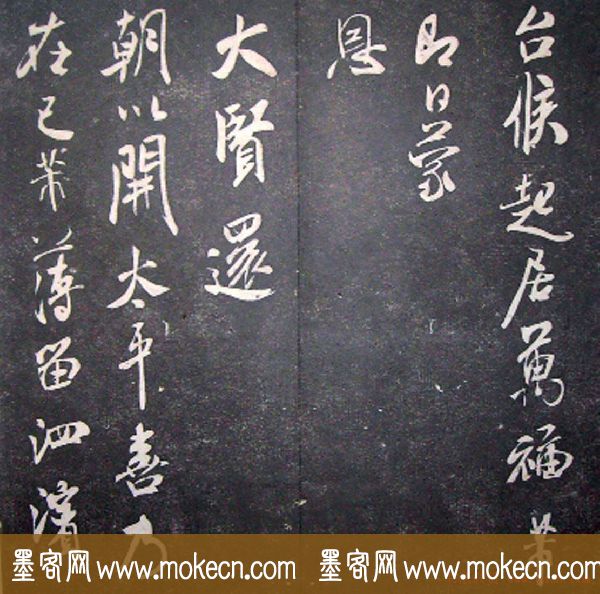 台候起居萬福芾
即日蒙
恩
大賢還
朝以開太平喜乃
在己芾薄留泗濱
墨客网 www.mokecn.com 墨客网 www.mokecn.com